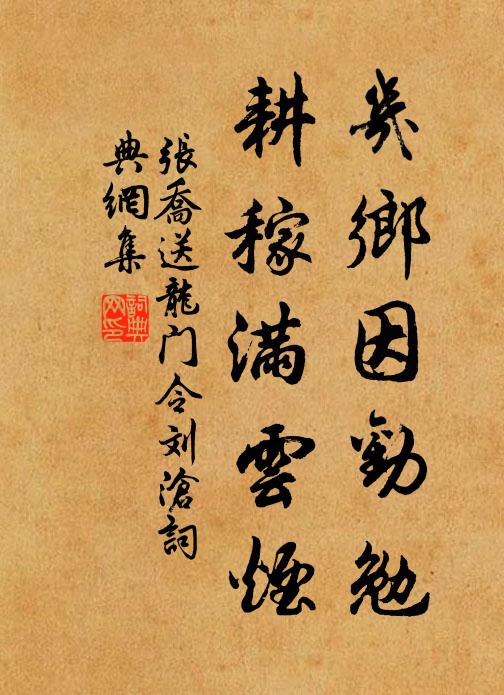 幾鄉因勸勉
耕稼滿雲煙
張喬送龍门令刘滄詞
典網集
詞典網印